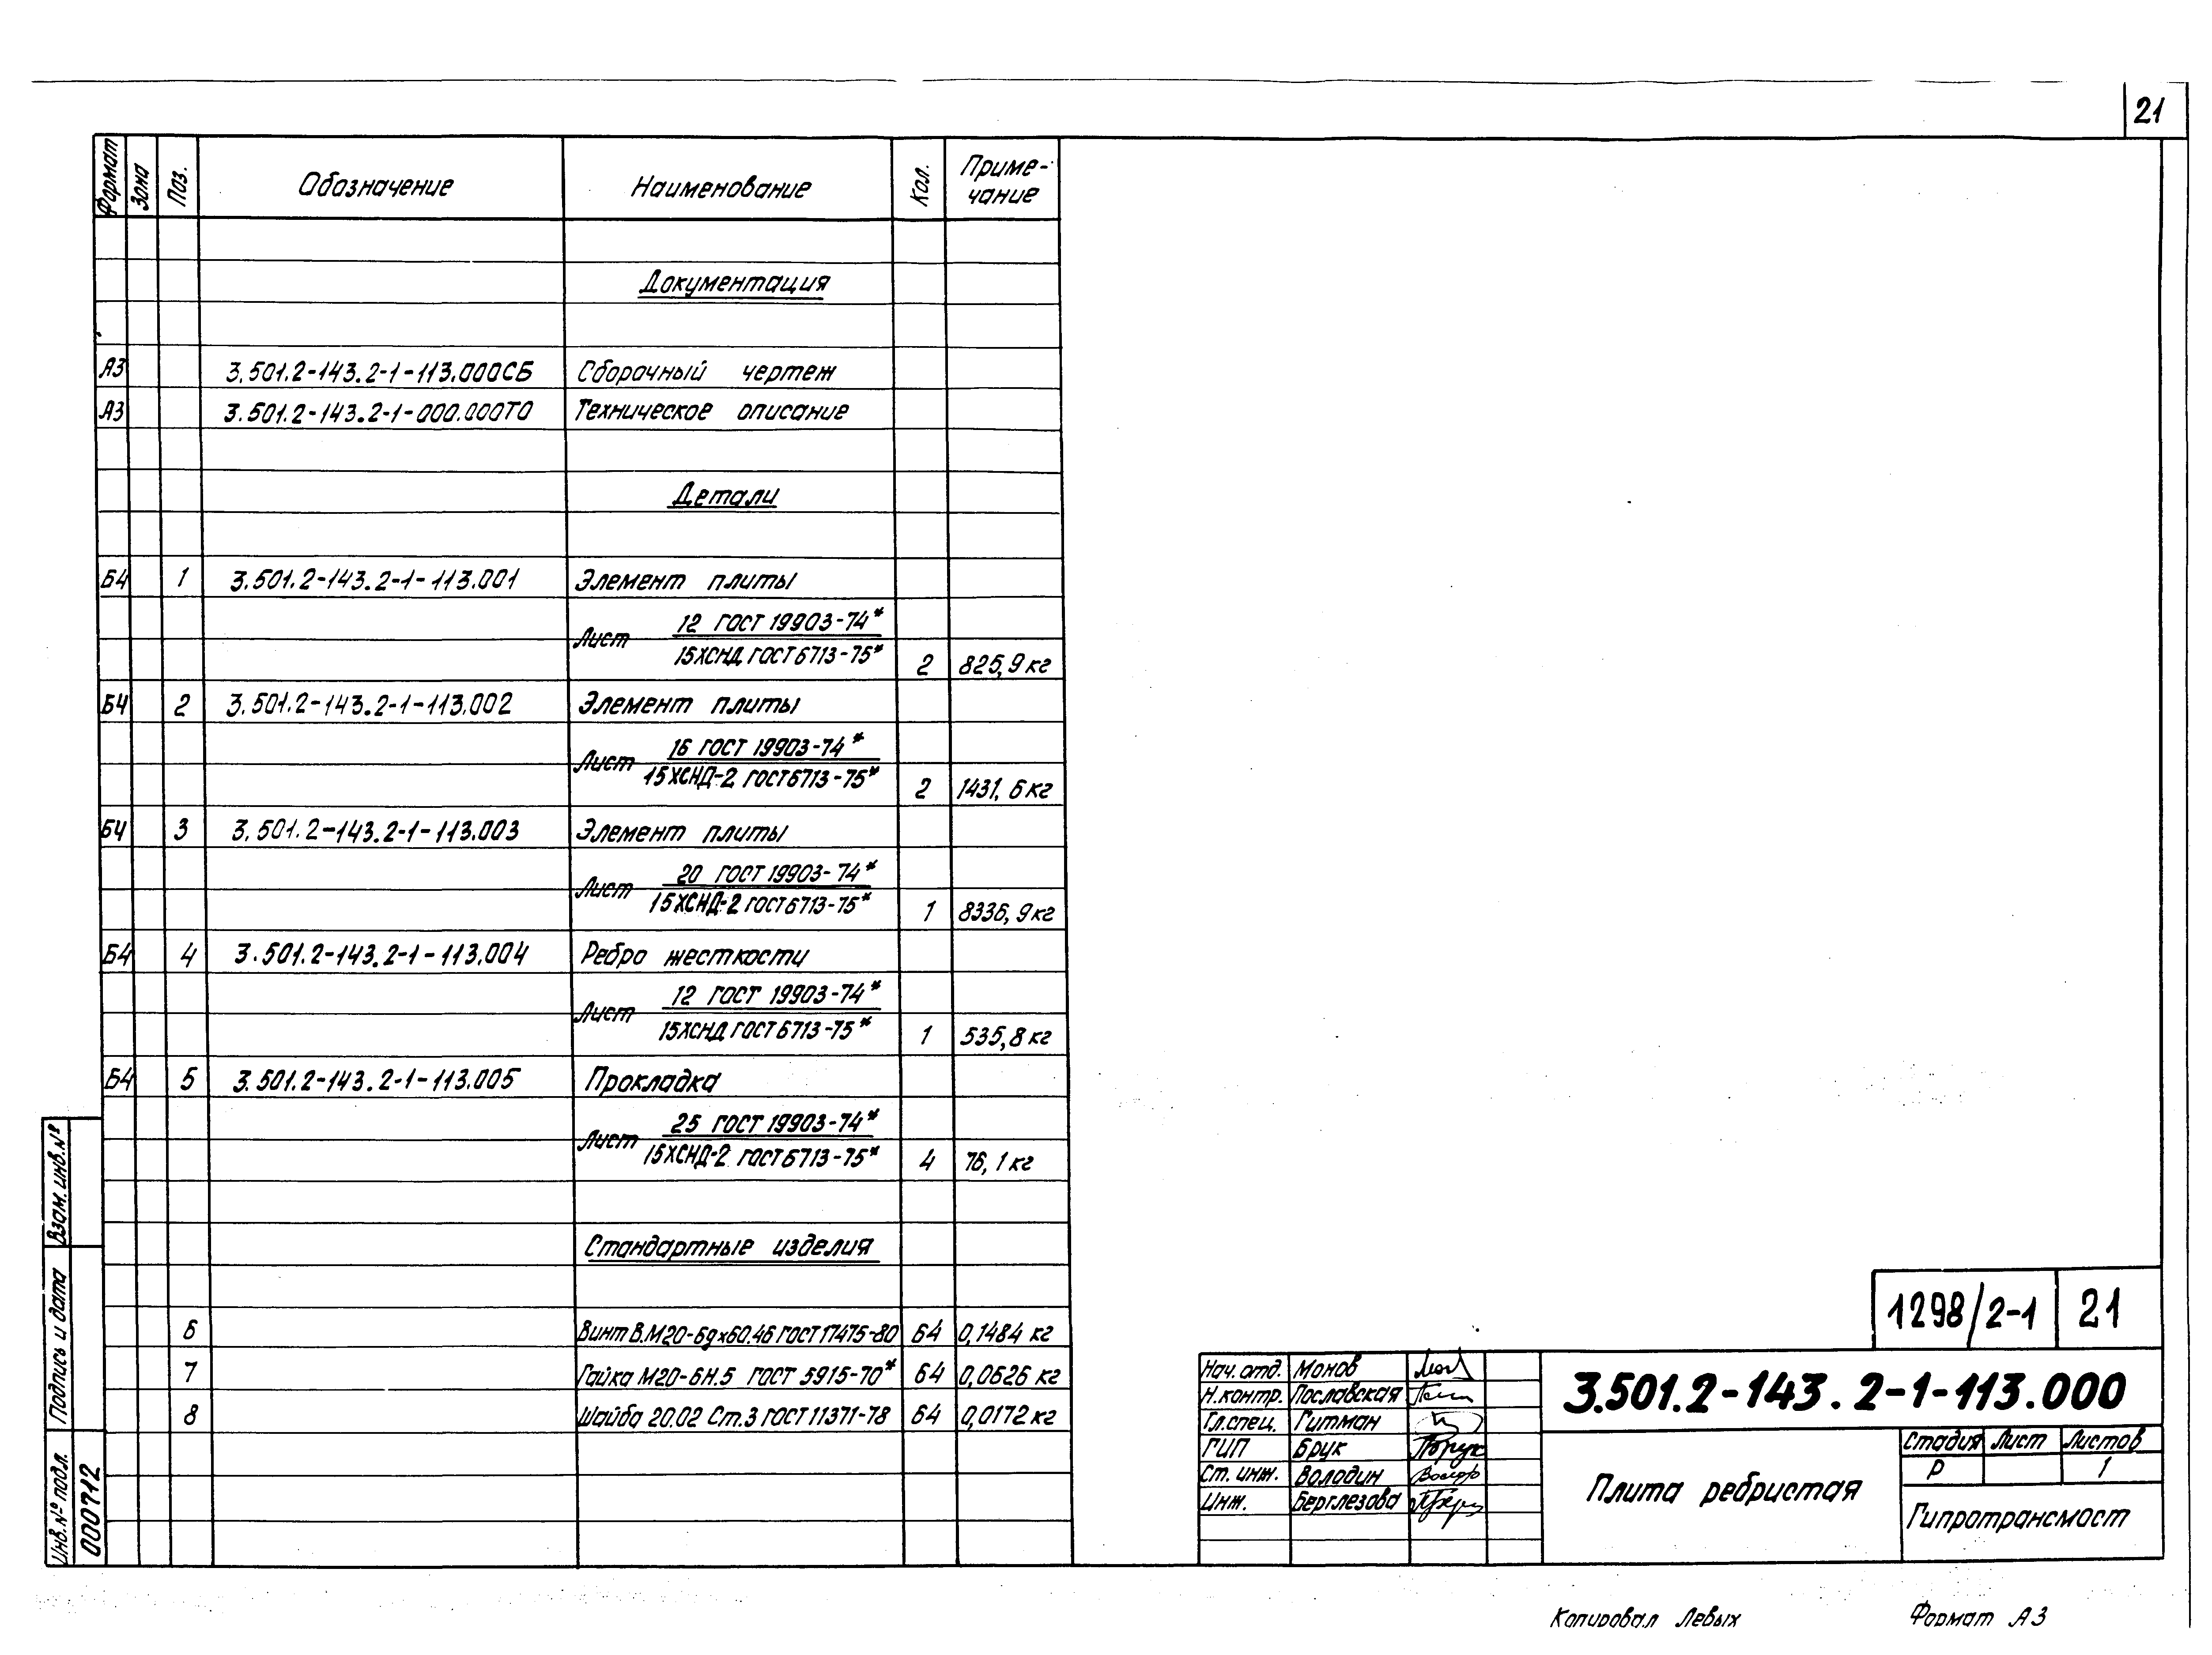 21
Формат Зона Поз. Обозначение Наименование Кол. Приме-
чание
Документация
А3 3.501.2-143.2-1-113.000СБ Сборочный чертеж
А3 3.501.2-143.2-1-000.000ТО Техническое описание
Детали
Б4 1 3.501.2-143.2-1-113.001 Элемент плиты
Лист 12 ГОСТ 19903-74*
15ХСНД ГОСТ 6713-75* 2 825,9 кг
Б4 2 3.501.2-143.2-1-113.002 Элемент плиты
Лист 16 ГОСТ 19903-74*
15ХСНД-2 ГОСТ 6713-75* 2 1431,6 кг
Б4 3 3.501.2-143.2-1-113.003 Элемент плиты
Лист 20 ГОСТ 19903-74*
15ХСНД-2 ГОСТ 6713-75* 1 8336,9 кг
Б4 4 3.501.2-143.2-1-113.004 Ребро жесткости
Лист 12 ГОСТ 19903-74*
15ХСНД ГОСТ 6713-75* 1 535,8 кг
Б4 5 3.501.2-143.2-1-113.005 Прокладка
Лист 25 ГОСТ 19903-74*
15ХСНД-2 ГОСТ 6713-75* 4 76,1 кг
Стандартные изделия
6 Винт В.М20-6gх60.46 ГОСТ 17475-80 64 0,1484 кг
7 Гайка М20-6Н.5 ГОСТ 5915-70* 64 0,0626 кг
8 Шайба 20.02 Ст.3 ГОСТ 11371-78 64 0,0172 кг
Взам. инв.№
Подпись и дата
Инв.№ подл.
000712
1298/2-1 21
Нач. отд. Монов
Н.контр. Пославская
Гл.спец. Гитман
ГИП Брук
Ст. инж. Володин
Инж. Берглезова
3.501.2-143.2-1-113.000
Плита ребристая
Стадия Лист Листов
Р 1
Гипротрансмост
Копировал Левых Формат А3